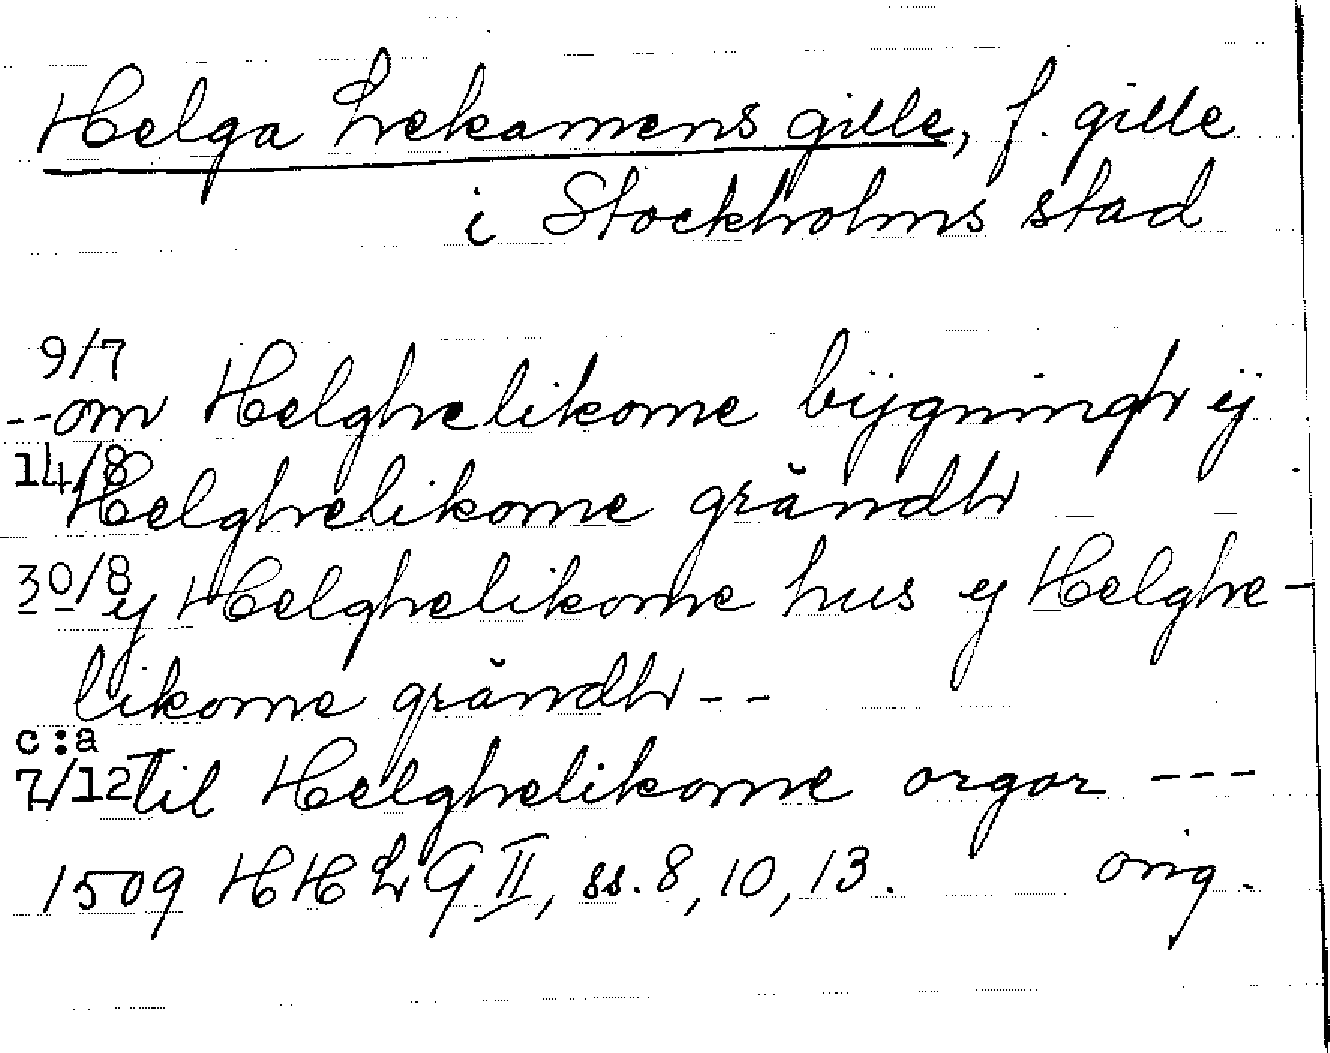 Helga Lekamens gille, f. gille
i Stockholms stad
9/7
--om Helghelikome bÿgningh ij
14/8
Helghelikome grăndh
30/8
-- ij Helghelikome hus ij Helghe-
likome grăndh --
c:a
7/12 til Helghelikome orgor ---
1509 HHLG II, ss. 8, 10, 13. orig.